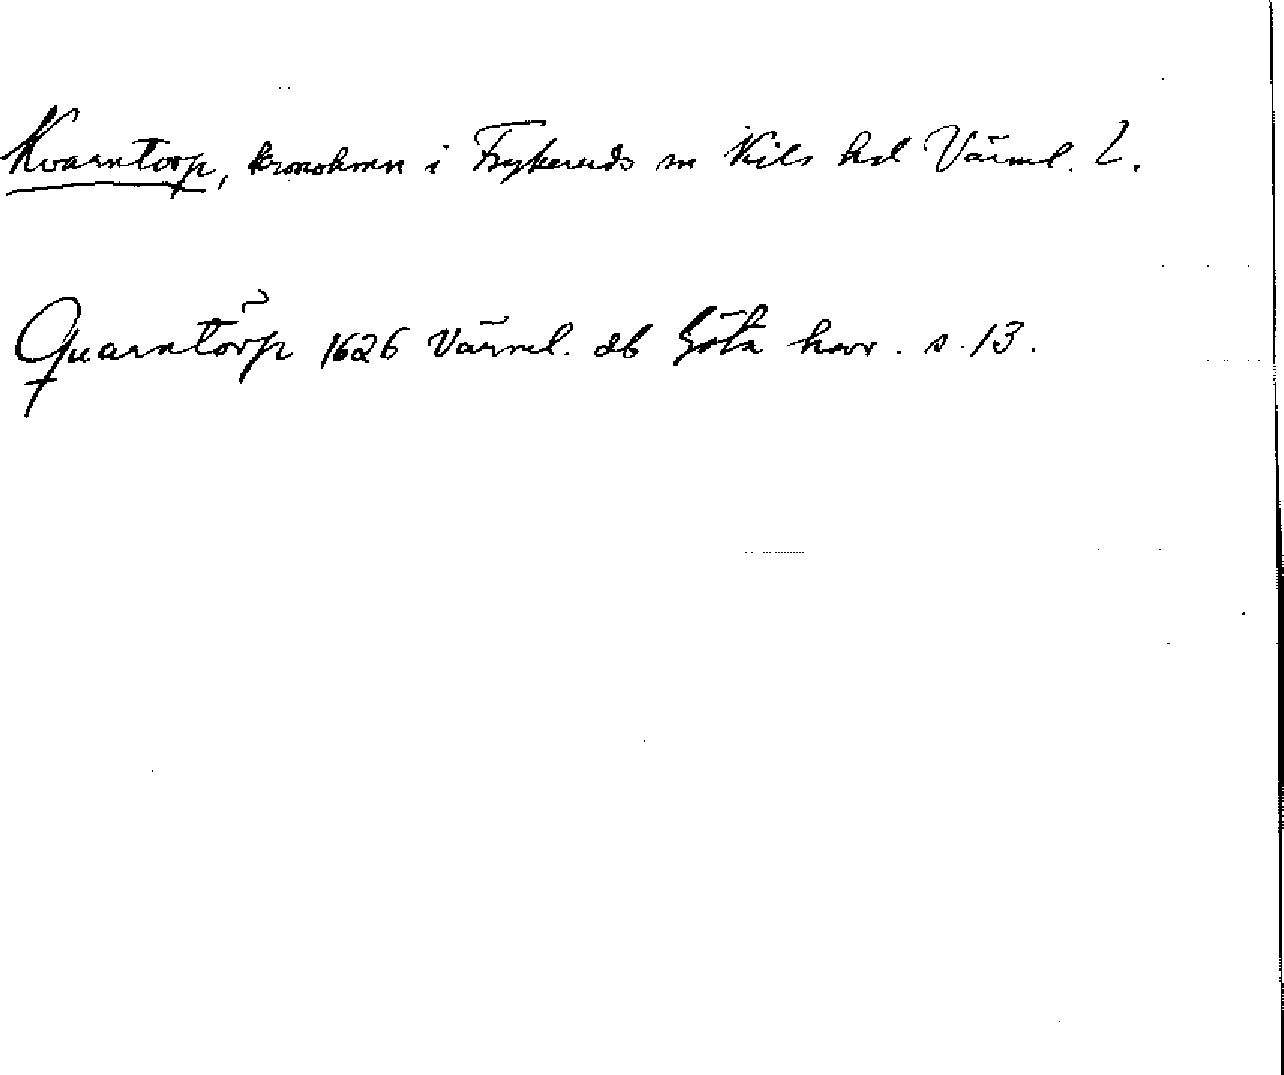 Kvarntorp, kronohmn i Frykeruds sn Kils hd Värml. L.
Quarntorp 1626 Värml. db Göta hovr. s. 13.